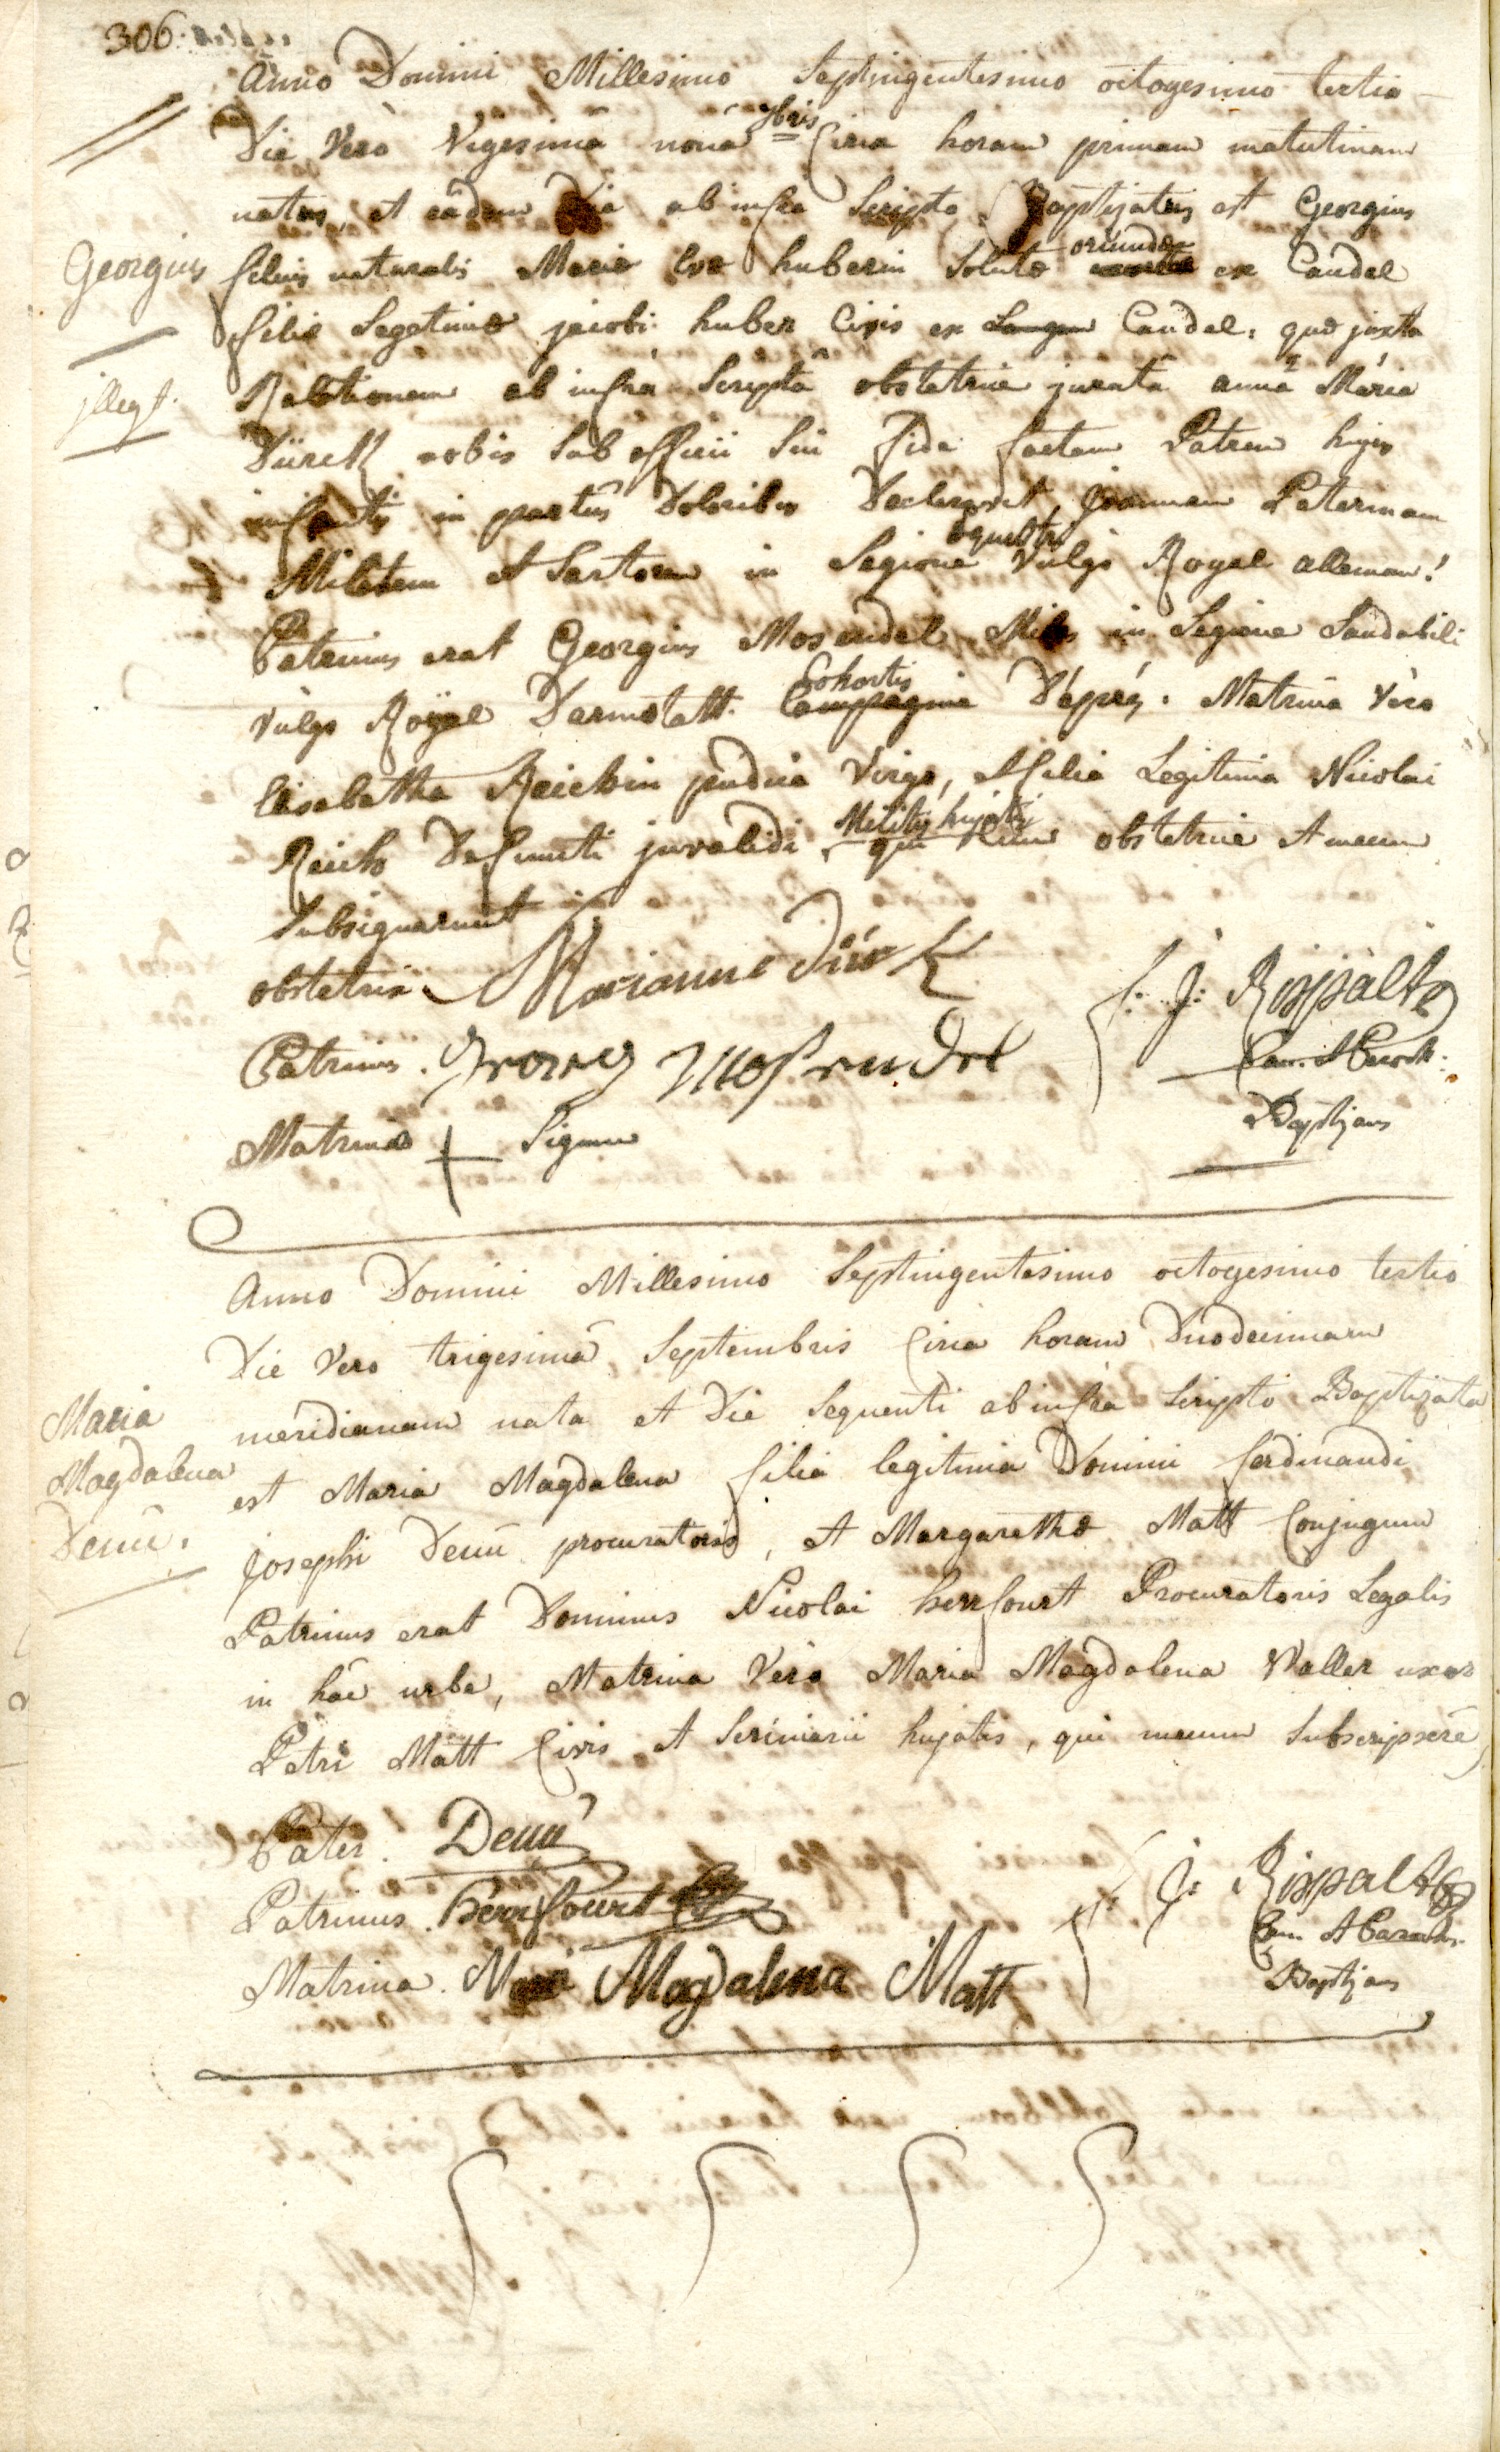 306.
Anno Domini Millesimo Septingentesimo octogesimo tertio
Die Verò Vigesimâ nonâ 7bris Circa horam primam matutinam
natus, et eâdem Die ab infra Scripto Baptizatus est Georgius
Georgius
filius naturalis Mariæ Evæ huberin Solutæ oriundæ ex Candel
filiæ Legitimæ jacobi huber Civis ex Candel: quæ juxta
jlleg t.
Relationem ab infrà Scriptâ obstetrice juratâ annâ Mariâ
Dürck nobis Sub officii Sui fide factam Patrem hujus
infantis in partûs Doloribus Declaravit Joannem Peterman
Militem et Sartorem in Legione equestri Vulgò Royal alleman!
Patrinus erat Georgius Mosendel Miles in Legione Laudabili
Vulgo Royal Darmstatt. Cohortis Compagnie Déprez. Matrina Verò
Elisabetha Reichin pudica Virgo, et filia Legitima Nicolai
Reich Defuncti jnvalidi Militis hujatis, qui Cum obstetrice et mecum
Subsignarunt
obstetrix Marianne Dürck
f: J: Rispalts
Can: et Paroch:
Baptizans
Patrinus. Georg Mosendel
Matrinæ + Signum
Anno Domini Millesimo Septingentesimo octogesimo tertio
Die Vero trigesimâ Septembris Circa horam Duodecimam
meridianam nata et Die Sequenti ab infra Scripto Baptizata
Maria
Magdalena
Denü.
est Maria Magdalena filia legitima Domini ferdinandi
Josephi Denü procuratoris, et Margarethæ Matt Conjugum
Patrinus erat Dominus Nicolai herrfourt Procuratoris Legalis
in hâc urbe, Matrina Verò Maria Magdalena Waller uxor
Petri Matt Civis et Scriniarii hujatis, qui mecum Subscripsere
Pater. Denü
Patrinus. herrfourt
f: J: Rispalts
Can et Paroch.
Baptizans
Matrina. Maria Magdalena Matt